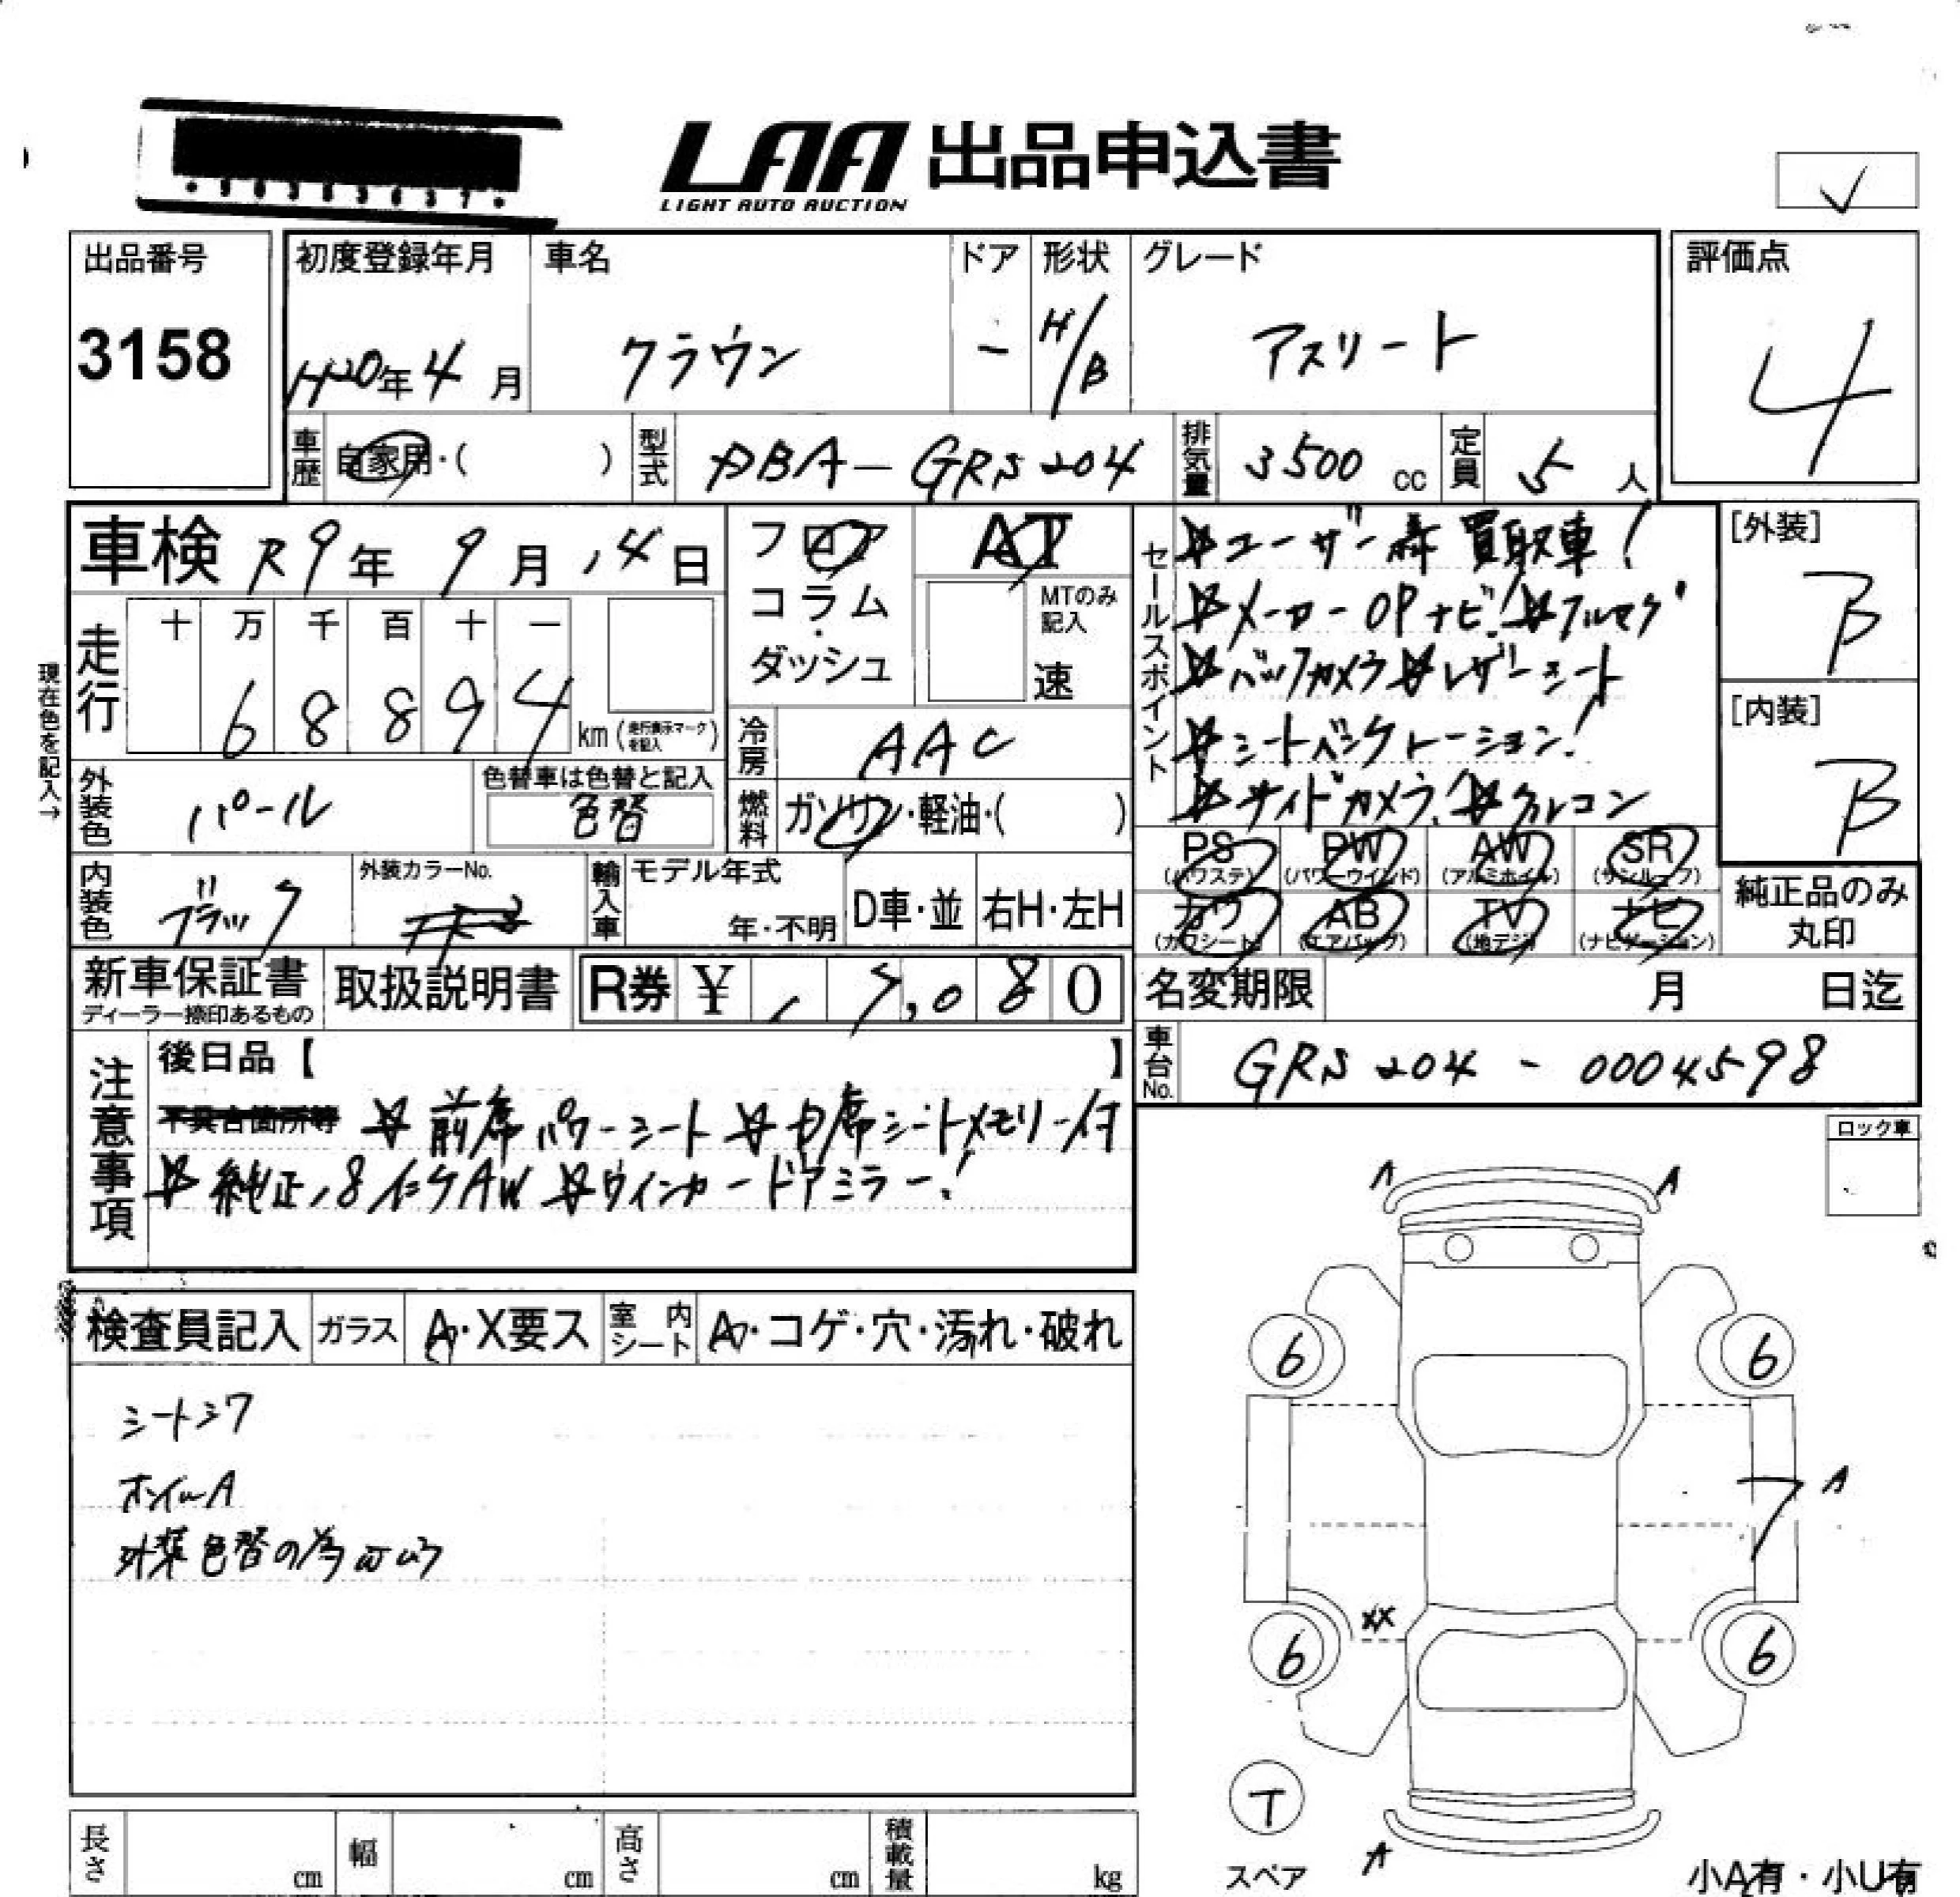 LAA 出品申込書
LIGHT AUTO AUCTION
出品番号
3158
初度登録年月
H20年4月
車名
クラウン
ドア
-
形状
H/B
グレード
アスリート
評価点
4
車歴
自家用・( )
型式
DBA-GRS204
排気量
3500 cc
定員
5人
車検 R9年9月14日
フロア
コラム
・
ダッシュ
AT
MTのみ
記入
速
セールスポイント
☆ユーザー様買取車!
☆メーカーOPナビ!☆フルセグ
☆バックカメラ☆レザーシート
☆シートベンチレーション!
☆サイドカメラ!☆クルコン
[外装]
B
[内装]
B
現在色を記入→
走行
十 万 千 百 十 一
6 8 8 9 4
km (走行表示マークを記入)
冷房
AAC
外装色
パール
色替車は色替と記入
色替
燃料
ガソリン・軽油・( )
PS
(パワステ)
PW
(パワーウインド)
AW
(アルミホイル)
SR
(サンルーフ)
カワ
(カワシート)
AB
(エアバッグ)
TV
(地デジ)
ナビ
(ナビゲーション)
純正品のみ
丸印
内装色
ブラック
外装カラーNo.
輸入車
モデル年式
年・不明
D車・並
右H・左H
新車保証書
ディーラー捺印あるもの
取扱説明書
R券 ¥ 1 5,0 8 0
名変期限 月 日迄
車台No.
GRS204-0004598
注意事項
後日品【 】
不具合箇所等 ☆前席パワーシート☆D席シートメモリー付
☆純正18インチAW☆ウインカードアミラー!
ロック車
検査員記入
ガラス
A・X要ス
室内シート
A・コゲ・穴・汚れ・破れ
シートシワ
ホイルA
A A
6 6
7 A
XX
6 6
T
スペア
A
小A有・小U有
長さ cm
幅 cm
高さ cm
積載量 kg